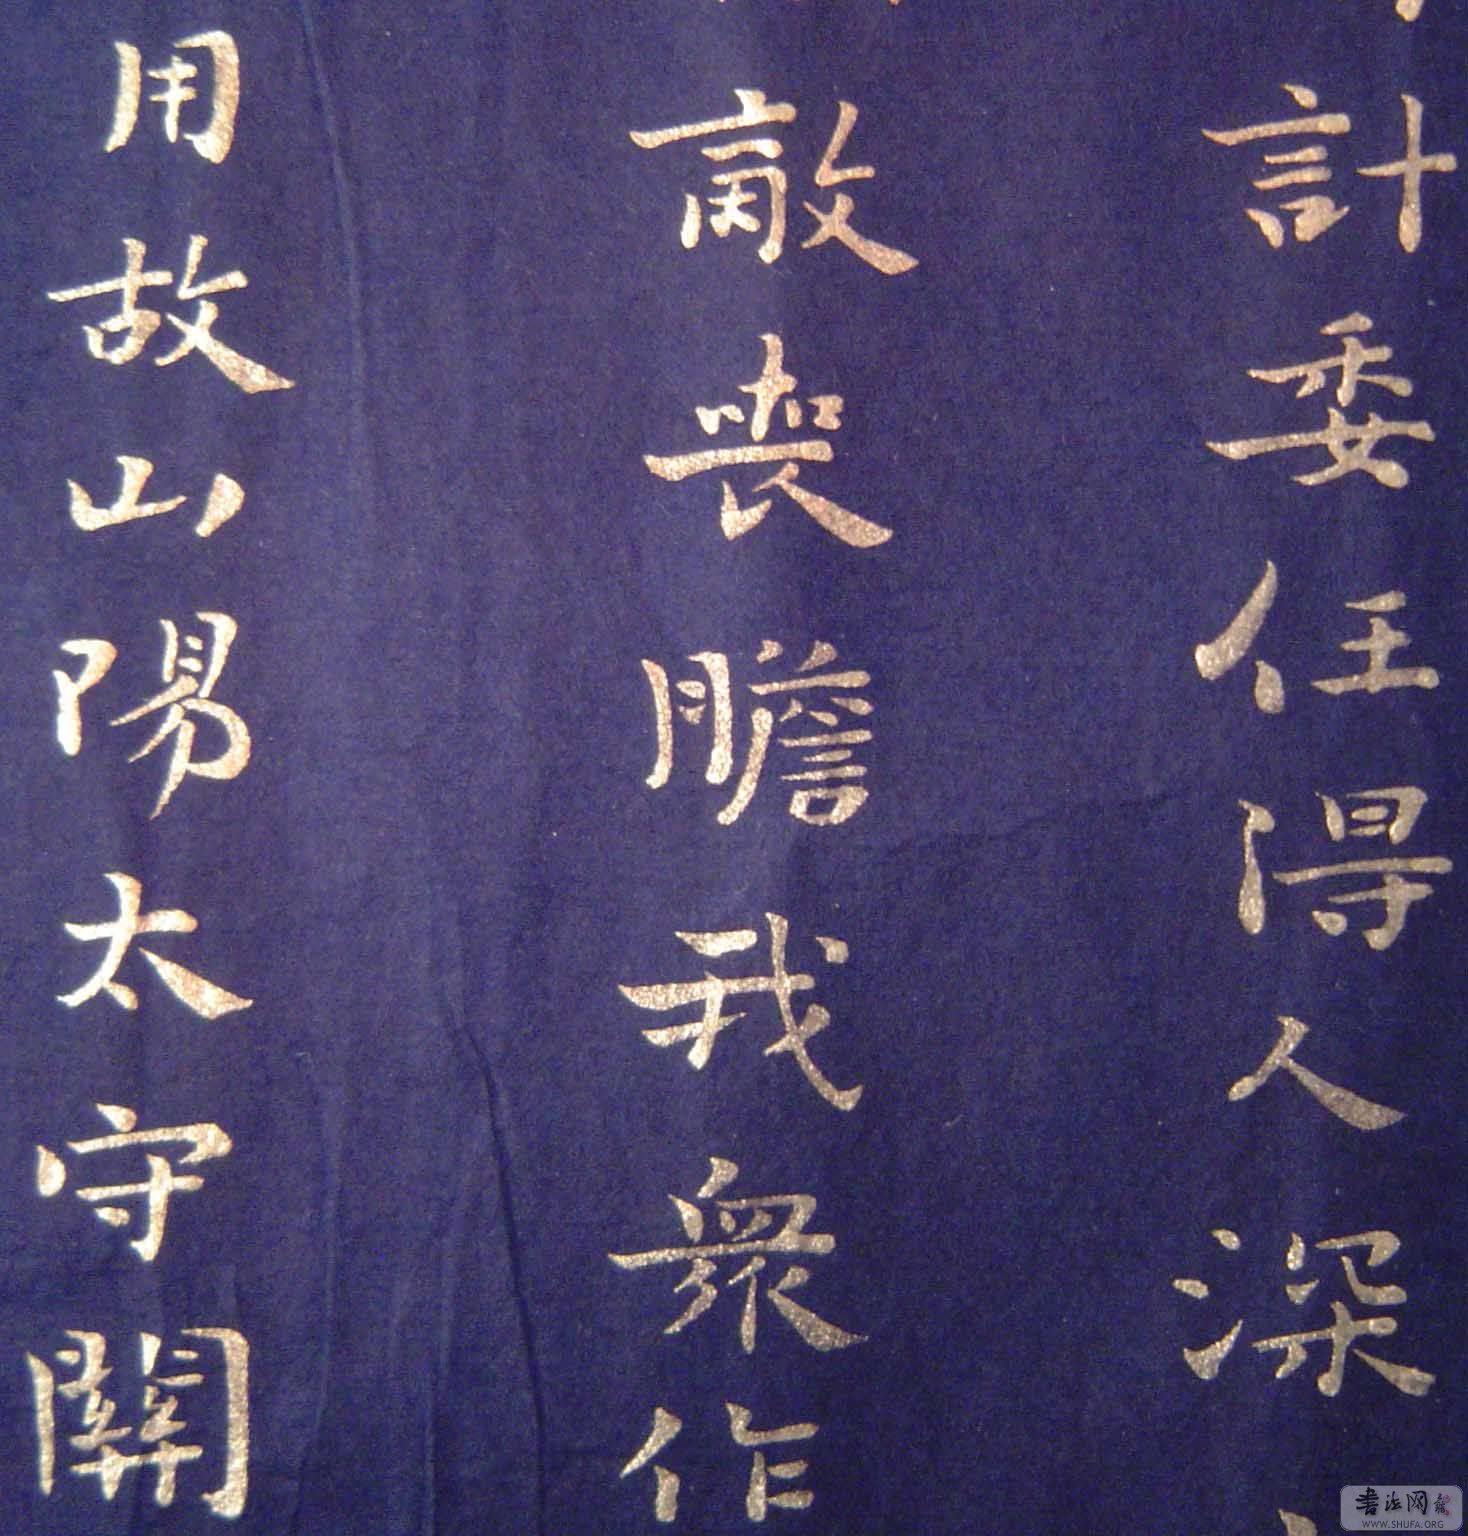 計委任得人深
敵喪膽我衆作
用故山陽太守關
書法网
WWW.SHUFA.ORG